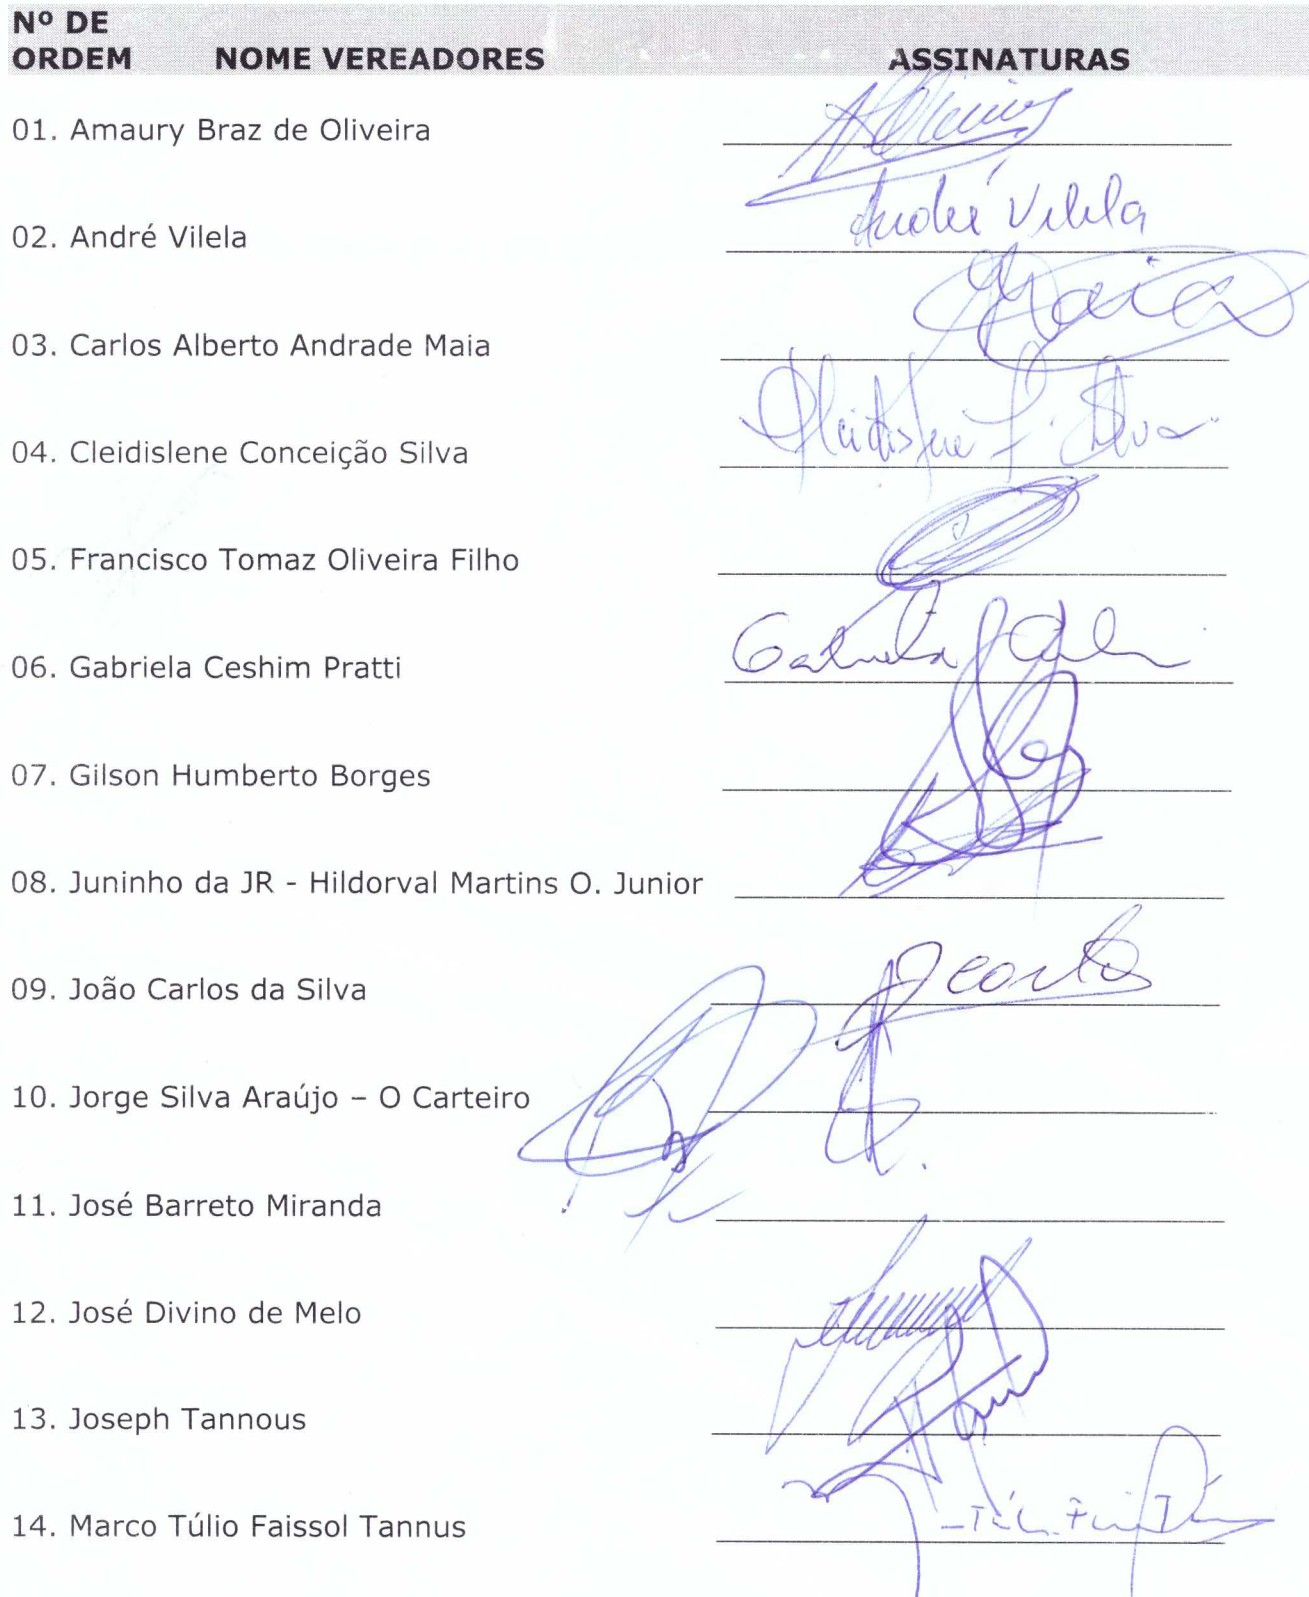 Nº DE
ORDEM NOME VEREADORES ASSINATURAS
01. Amaury Braz de Oliveira
02. André Vilela André Vilela
03. Carlos Alberto Andrade Maia Maia
04. Cleidislene Conceição Silva Cleidislene C. Silva
05. Francisco Tomaz Oliveira Filho
06. Gabriela Ceshim Pratti Gabriela
07. Gilson Humberto Borges
08. Juninho da JR - Hildorval Martins O. Junior
09. João Carlos da Silva JCarlos
10. Jorge Silva Araújo – O Carteiro
11. José Barreto Miranda
12. José Divino de Melo
13. Joseph Tannous
14. Marco Túlio Faissol Tannus